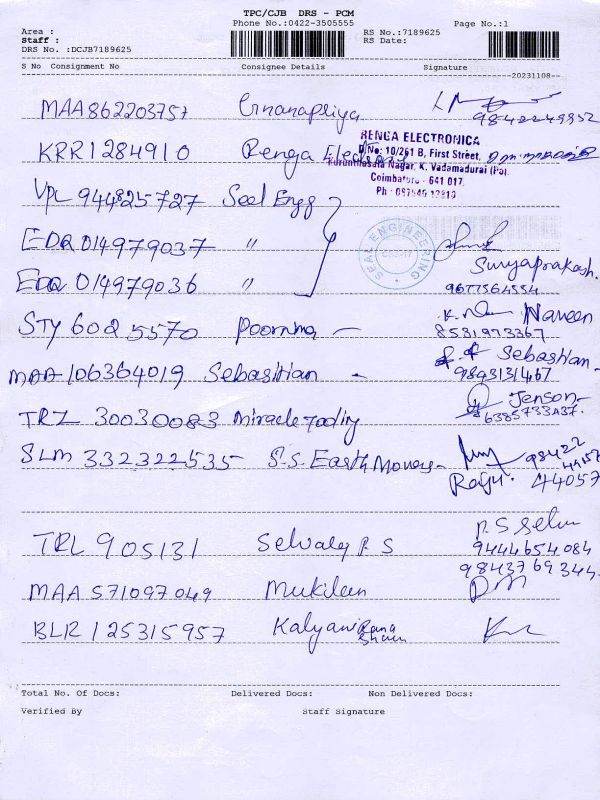 TPC/CJB DRS - PCM
Phone No.:0422-3505555
Page No.:1
Area :
Staff :
DRS No. :DCJB7189625
RS No.:7189625
RS Date:
S No Consignment No Consignee Details Signature
20231108
MAA862203757 Gnanapriya
9842249952
KRR1284910 Renga Electron
RENGA ELECTRONICA
D.No: 10/261 B, First Street,
Nagar, K. Vadamadurai (Po),
Coimbatore - 641 017.
VPL 944825727 Seal Engg
EDQ 014979037 "
SEAL ENGINEERING
Suryaprakash.
EDQ 014979036 "
9677564554
STY 6025570 Poornima - K. Naveen
8531973367
MAA 106364019 Sebasthian - Sebastian
9893131467
TRZ 30030083 Miracle Tooling Jenson
SLM 332322535 - S.S. Earth Movers - Raju. 98422 44057
TRL 905131 Selvaley P. S P. S Selvu
9444654084
9843769344
MAA 571097049 Mukileen
BLR 125315957 Kalyani
Total No. Of Docs: Delivered Docs: Non Delivered Docs:
Verified By Staff Signature